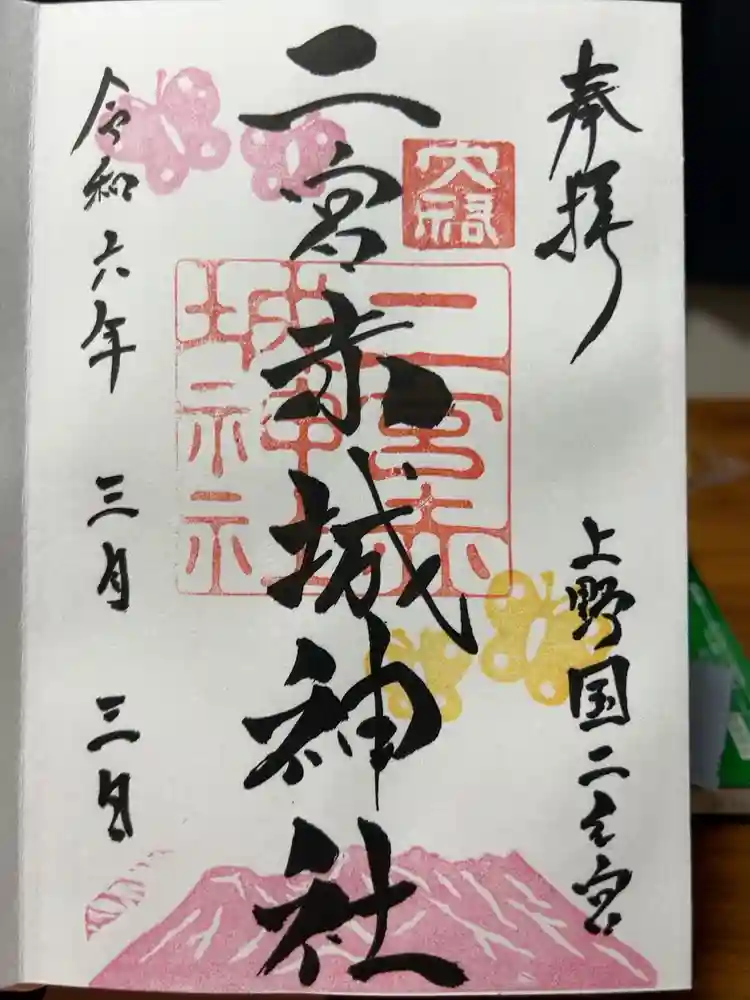 奉拝
上野国二之宮
二宮赤城神社
二宮赤
城神社
令和六年 三月 三日